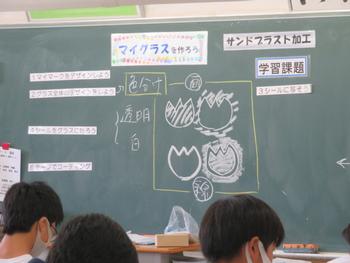 マイグラスを作ろう
サンドブラスト加工
学習課題
1マイマークをデザインしよう
2グラス全体のデザインをしよう
3シールに写そう
4シールをグラスに貼ろう
5テープでコーティング
色分け
透明
白
面
線